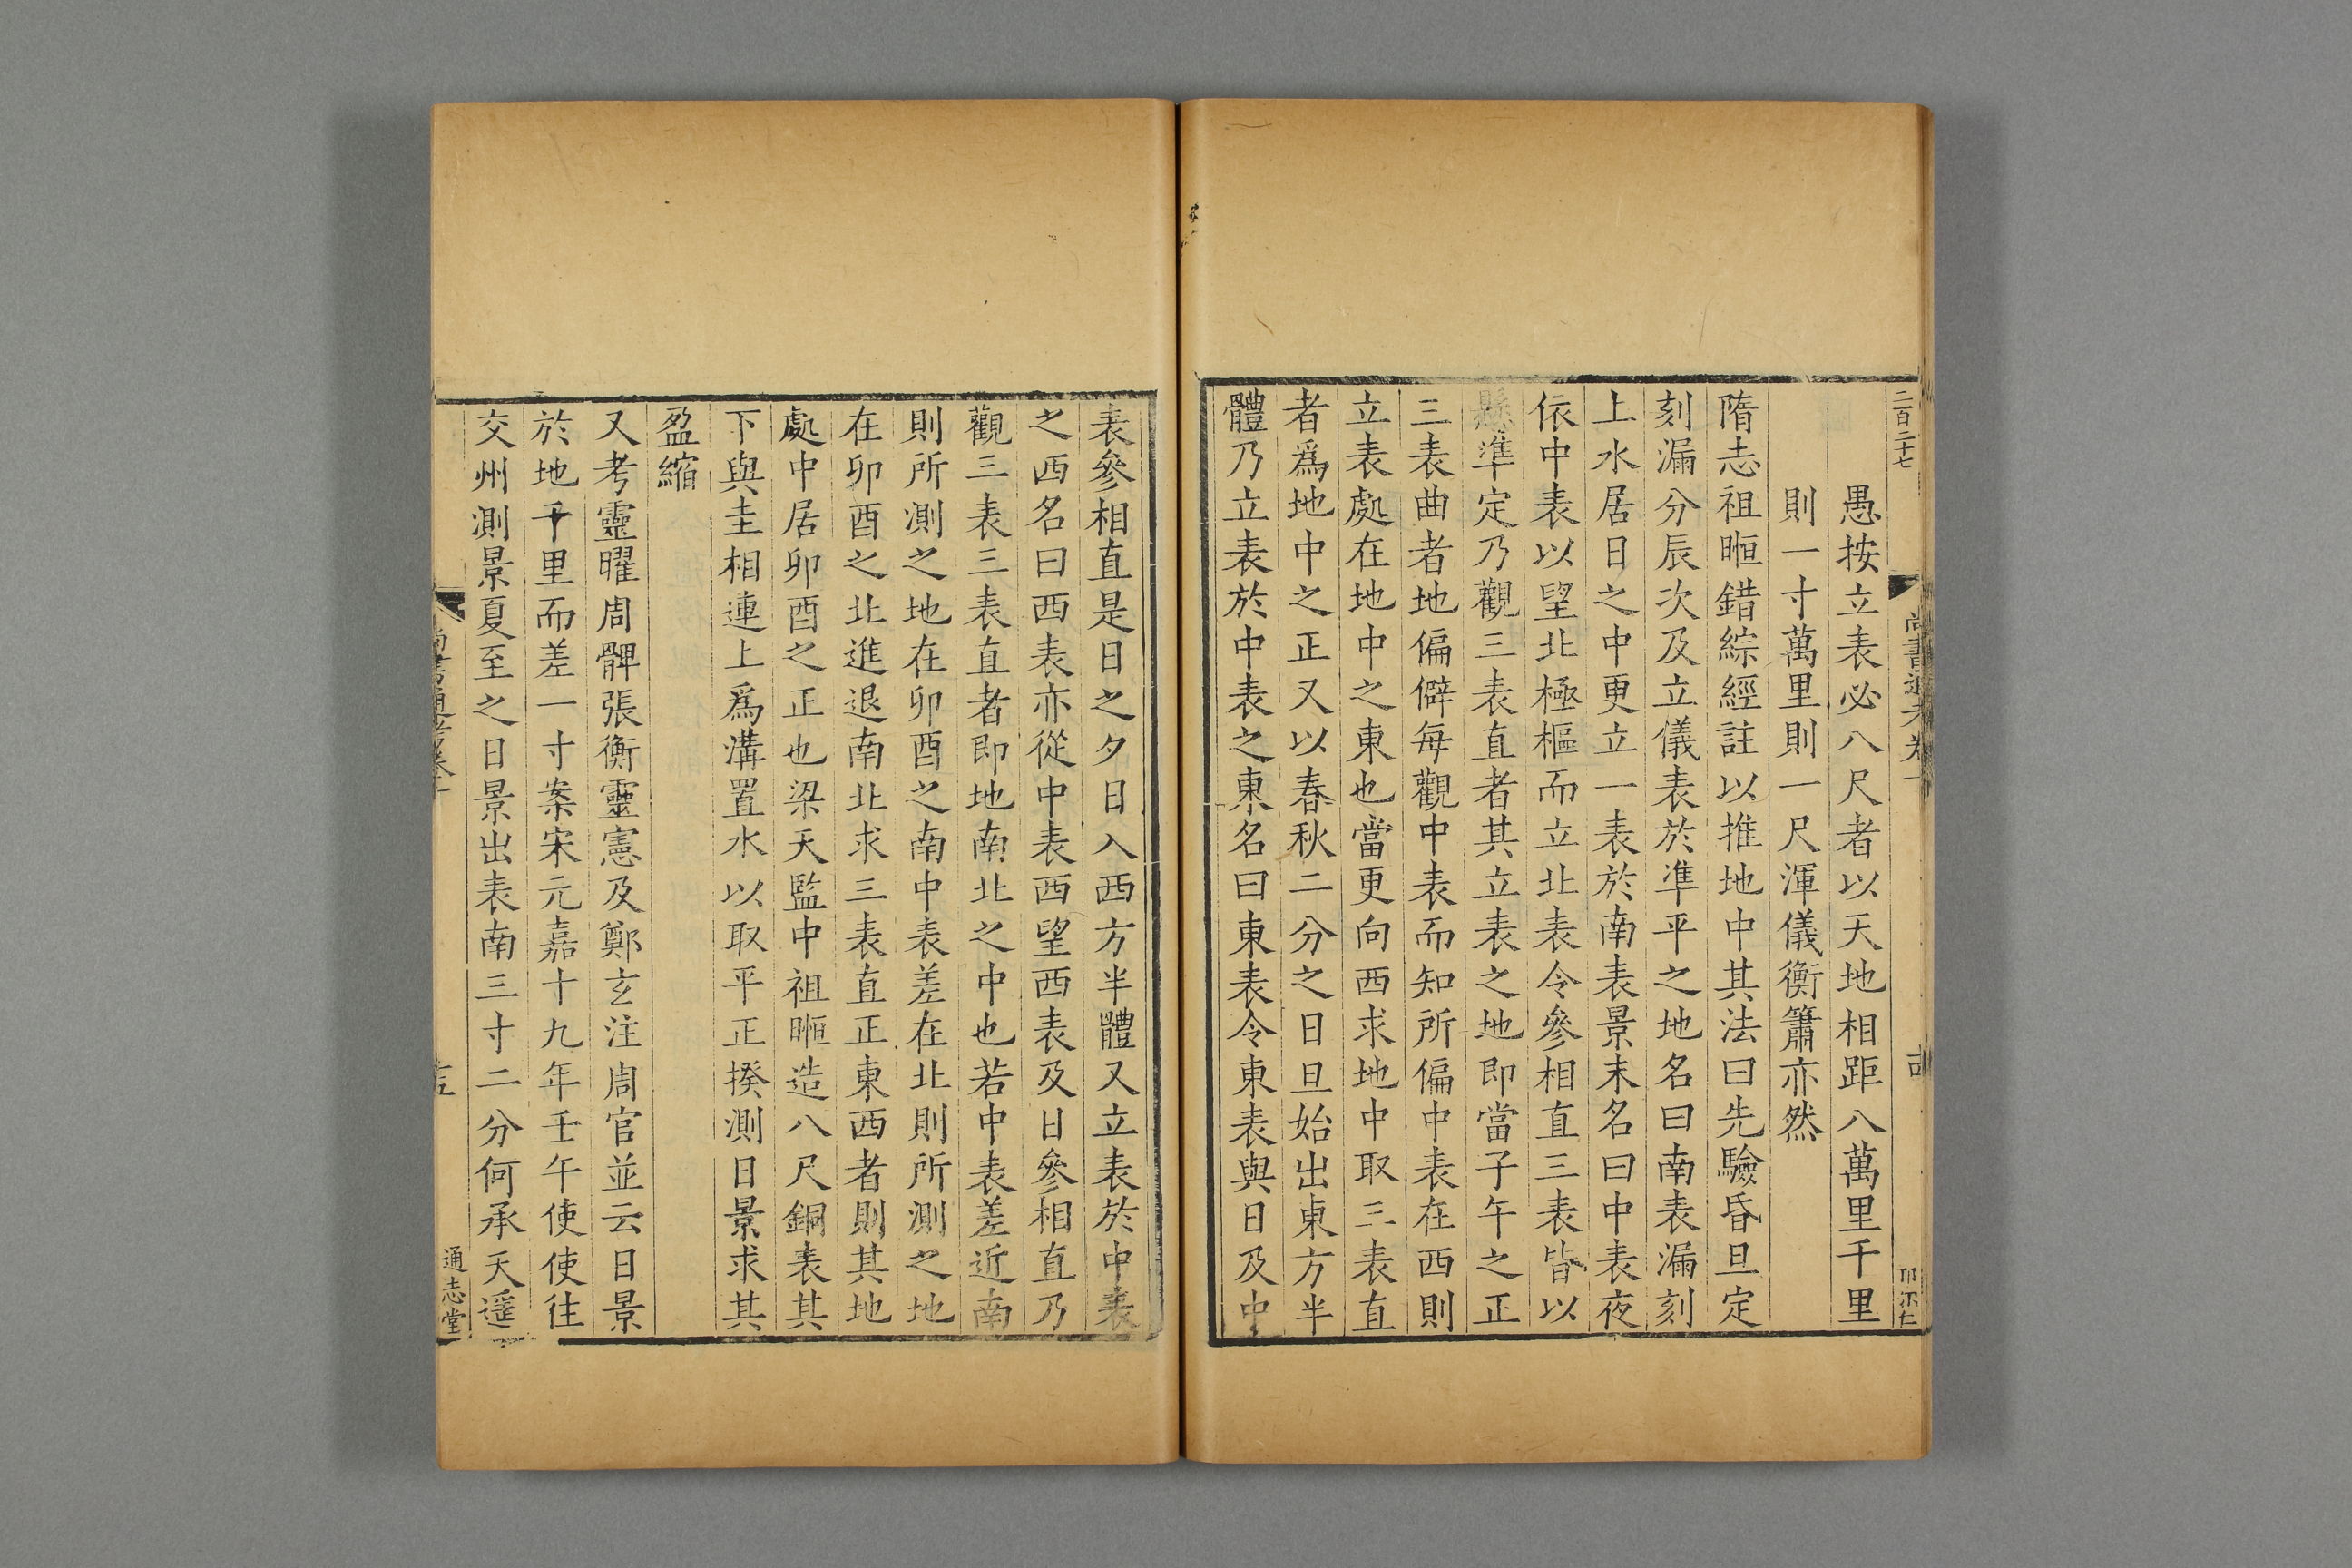 二百二十七
愚按立表必八尺者以天地相距八萬里千里
則一寸萬里則一尺渾儀衡簫亦然
隋志祖暅錯綜經註以推地中其法曰先驗昏旦定
刻漏分辰次及立儀表於準平之地名曰南表漏刻
上水居日之中更立一表於南表景末名曰中表夜
依中表以望北極樞而立北表令參相直三表皆以
懸準定乃觀三表直者其立表之地即當子午之正
三表曲者地偏僻每觀中表而知所偏中表在西則
立表處在地中之東也當更向西求地中取三表直
者爲地中之正又以春秋二分之日旦始出東方半
體乃立表於中表之東名曰東表令東表與日及中
表參相直是日之夕日入西方半體又立表於中表
之西名曰西表亦從中表西望西表及日參相直乃
觀三表三表直者即地南北之中也若中表差近南
則所測之地在卯酉之南中表差在北則所測之地
在卯酉之北進退南北求三表直正東西者則其地
處中居卯酉之正也梁天監中祖暅造八尺銅表其
下與圭相連上爲溝置水以取平正揆測日景求其
盈縮
又考靈曜周髀張衡靈憲及鄭玄注周官並云日景
於地千里而差一寸案宋元嘉十九年壬午使使往
交州測景夏至之日景出表南三寸二分何承天遥
尚書通考卷一
通志堂